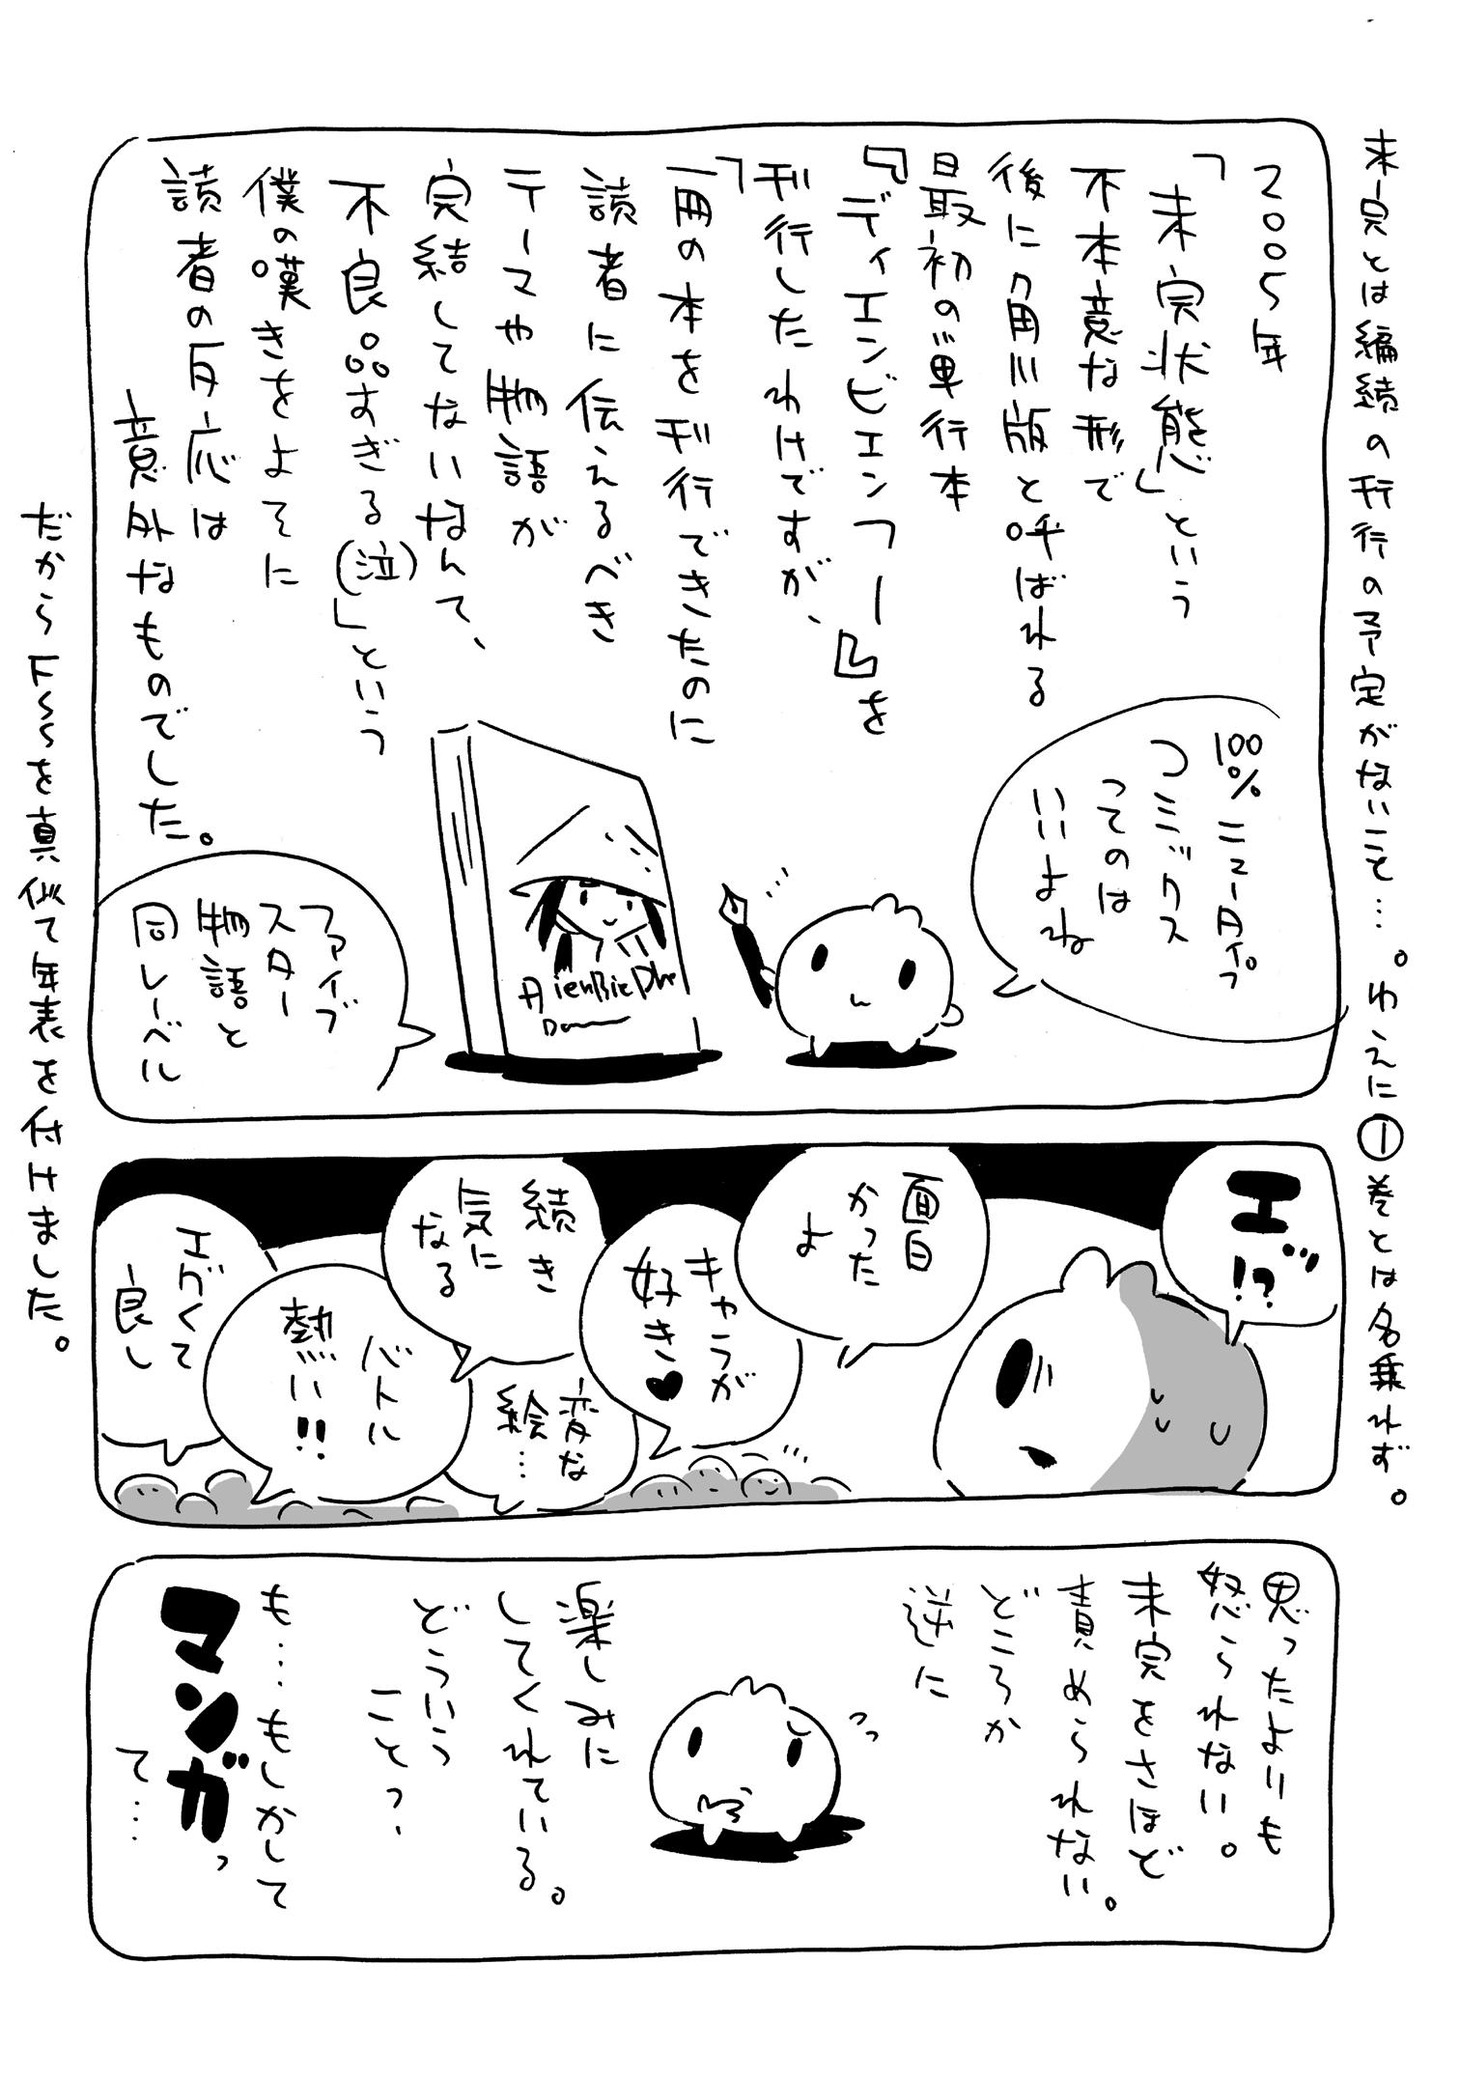 未完とは編続の刊行の予定がないこと…。ゆえに①巻とは名乗れず。
2005年
「未完状態」という
不本意な形で
後に角川版と呼ばれる
最初の単行本
『ディエンビエンフー』を
刊行したわけですが、
「一冊の本を刊行できたのに
読者に伝えるべき
テーマや物語が
完結してないなんて、
不良品すぎる(泣)」という
僕の嘆きをよそに
読者の反応は
意外なものでした。
100%ニュータイプ
コミックス
ってのは
いいよね
DienBienPhu
ファイブ
スター
物語と
同レーベル
だからFSSを真似て年表を付けました。
エ゛!?
面白
かった
よ
キャラが
好き♥
続き
気に
なる
変な
絵…
バトル
熱い!!
エグくて
良し
思ったよりも
怒られない。
未完をさほど
責められない。
どころか
逆に
楽しみに
してくれている。
どういう
こと?
も…もしかして
マンガっ
て…